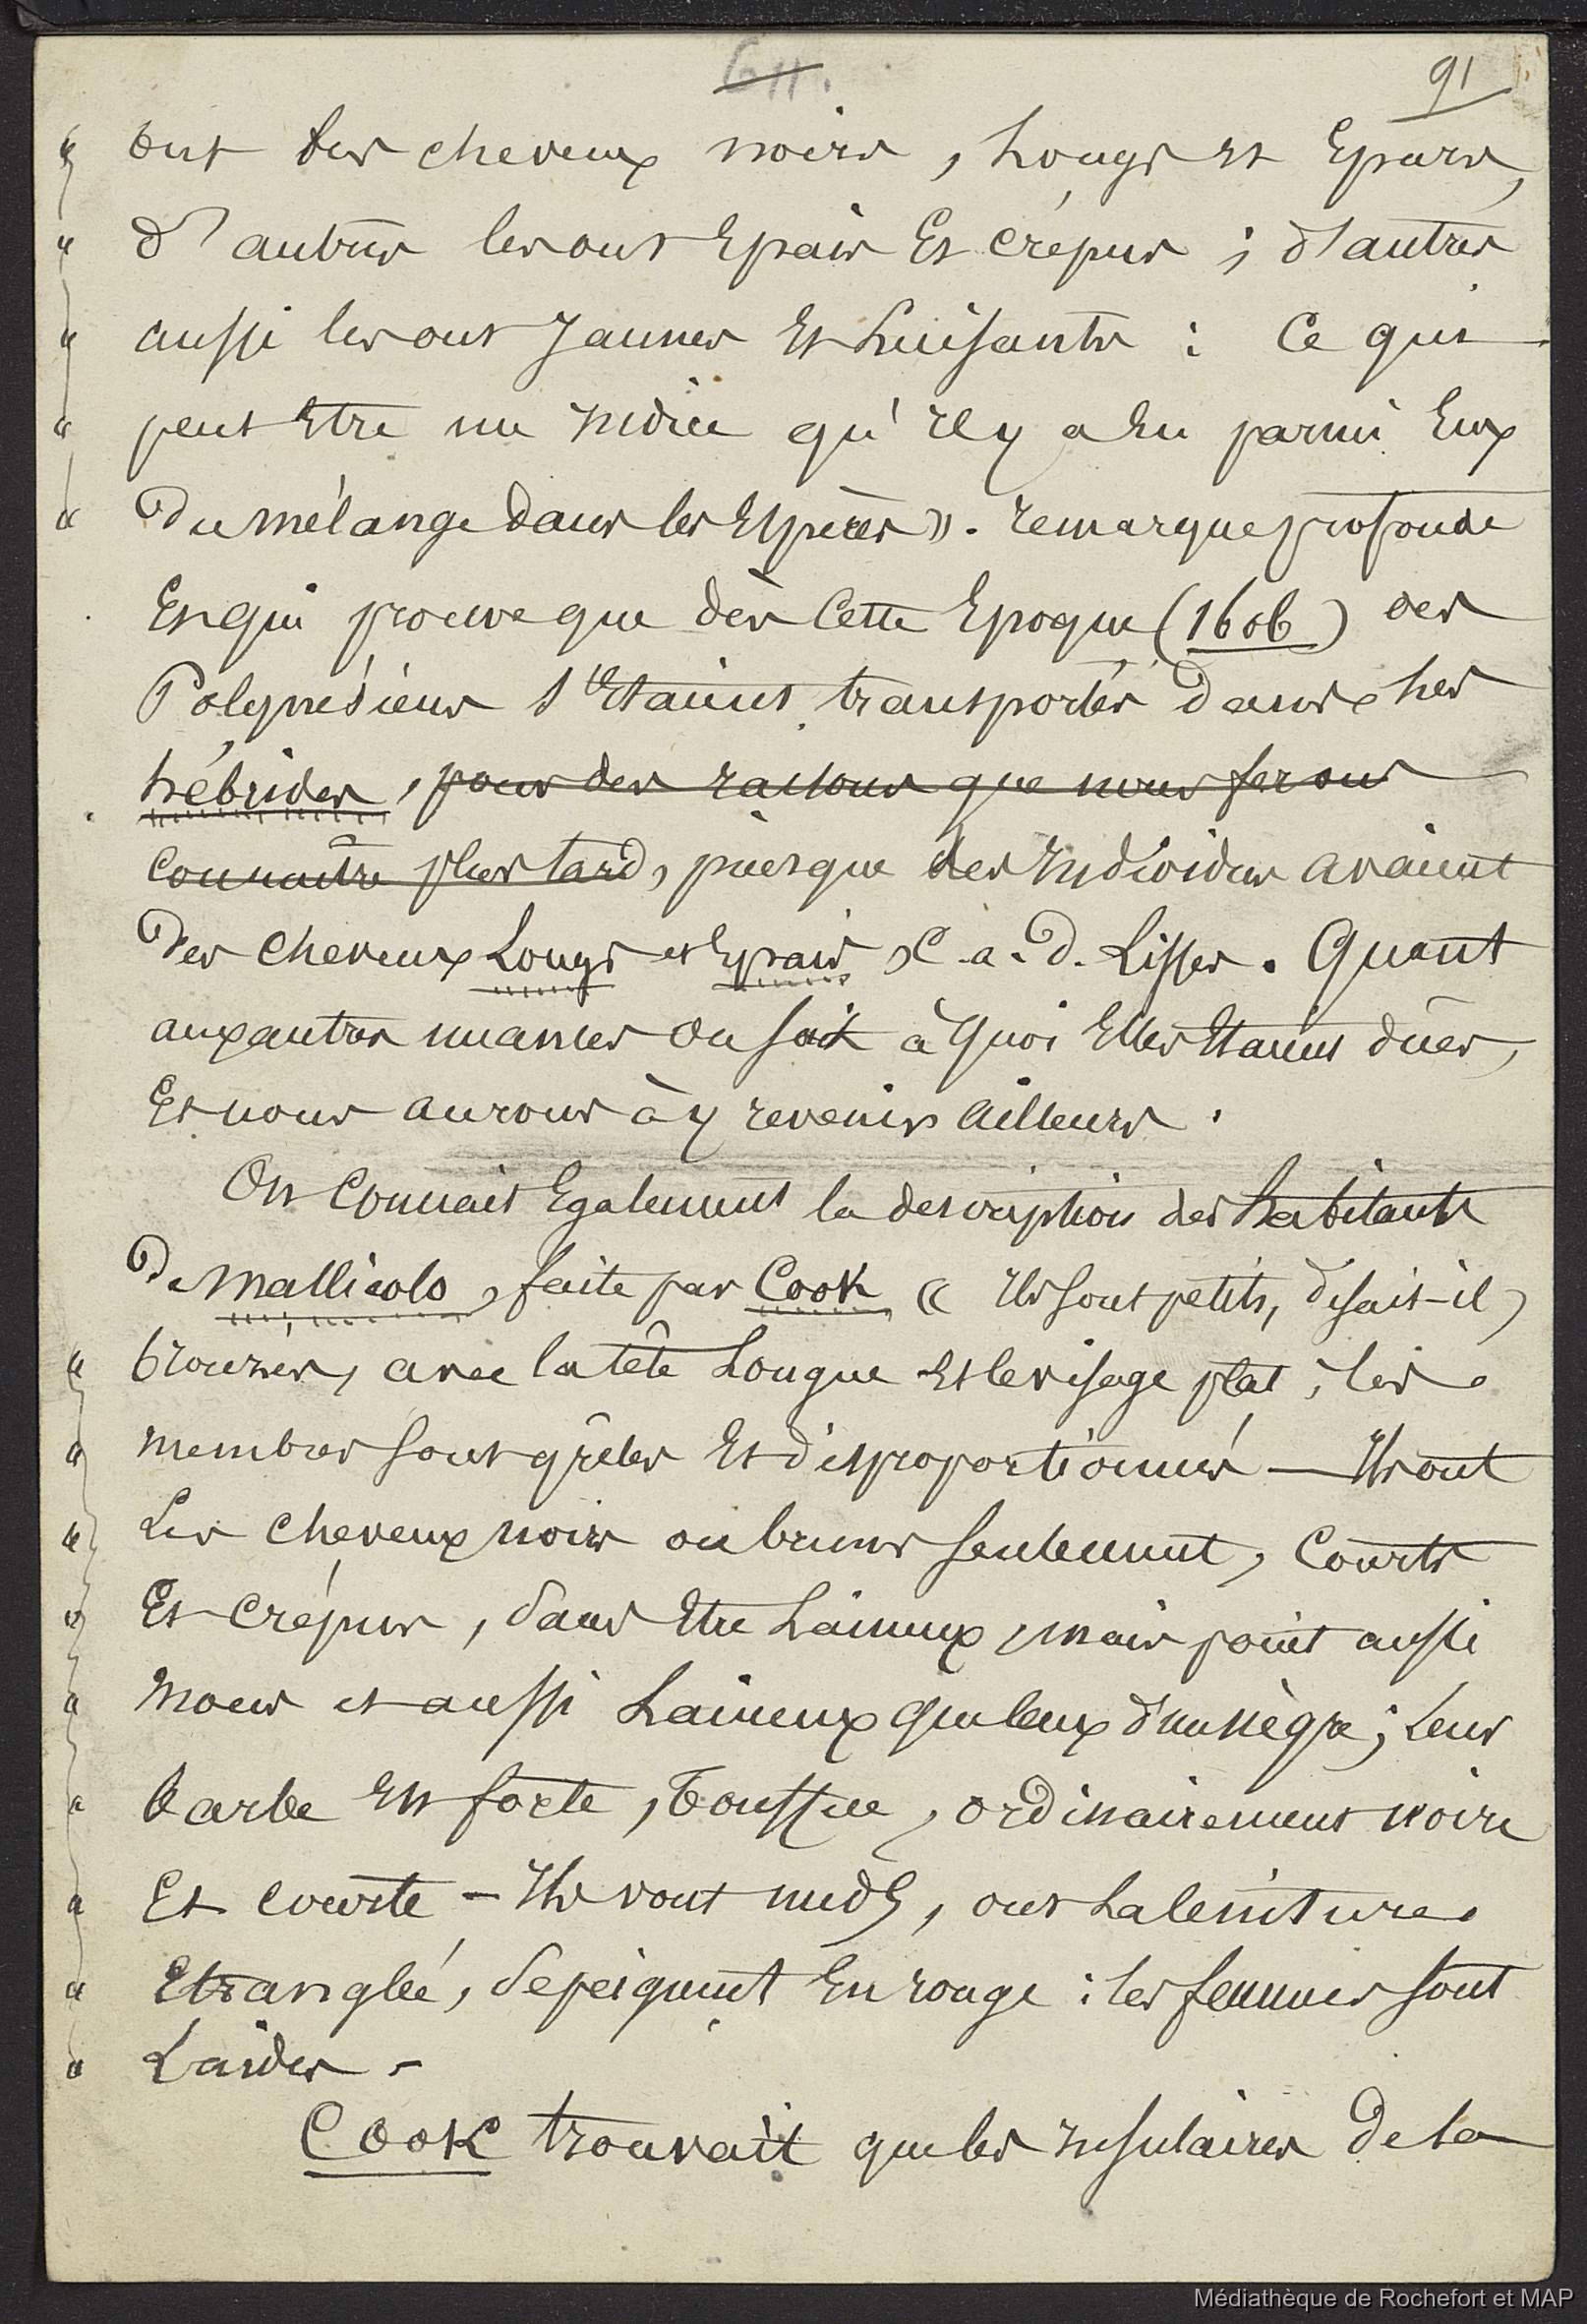 611. 91
" ont des cheveux noirs, longs et Epars,
" d'autres les ont Epais Et crépus ; d'autres
" aussi les ont Jaunes Et Luisants : Ce qui
" peut Etre un Indice qu'Il y a Eu parmi Eux
" Du mélange dans les Espèces ». remarque profonde
Et qui prouve que dès Cette Epoque (1606) des
Polynésiens s'Etaient transportés dans les
hébrides, pour des raisons que nous ferons
connaître plus tard, puisque des Individus avaient
Des cheveux Longs et Epais, C. a. D. Lisses. Quant
aux autres nuances on sait à quoi Elles Etaient dûes,
Et nous aurons à y revenir ailleurs.
On Connait Egalement la description des habitants
De Mallicolo, faite par Cook « Ils sont petits, disait-il,
" bronzés, avec la tête Longue Et le visage plat ; les
" membres sont grêles Et disproportionnés — Ils ont
" Les cheveux noirs ou bruns seulement, Courts
" Et Crépus, sans Etre Laineux, mais point aussi
" mous et aussi Laineux que ceux d'un nègre ; Leur
" barbe Est forte, touffue, ordinairement noire
" Et courte - Ils vont nuds, ont La ceinture
" Etranglée, se peignent En rouge : les femmes sont
" Laides -
Cook trouvait que les Insulaires De la
Médiathèque de Rochefort et MAP